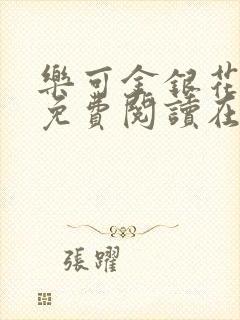 樂可金銀花
免費閱讀在
張躍